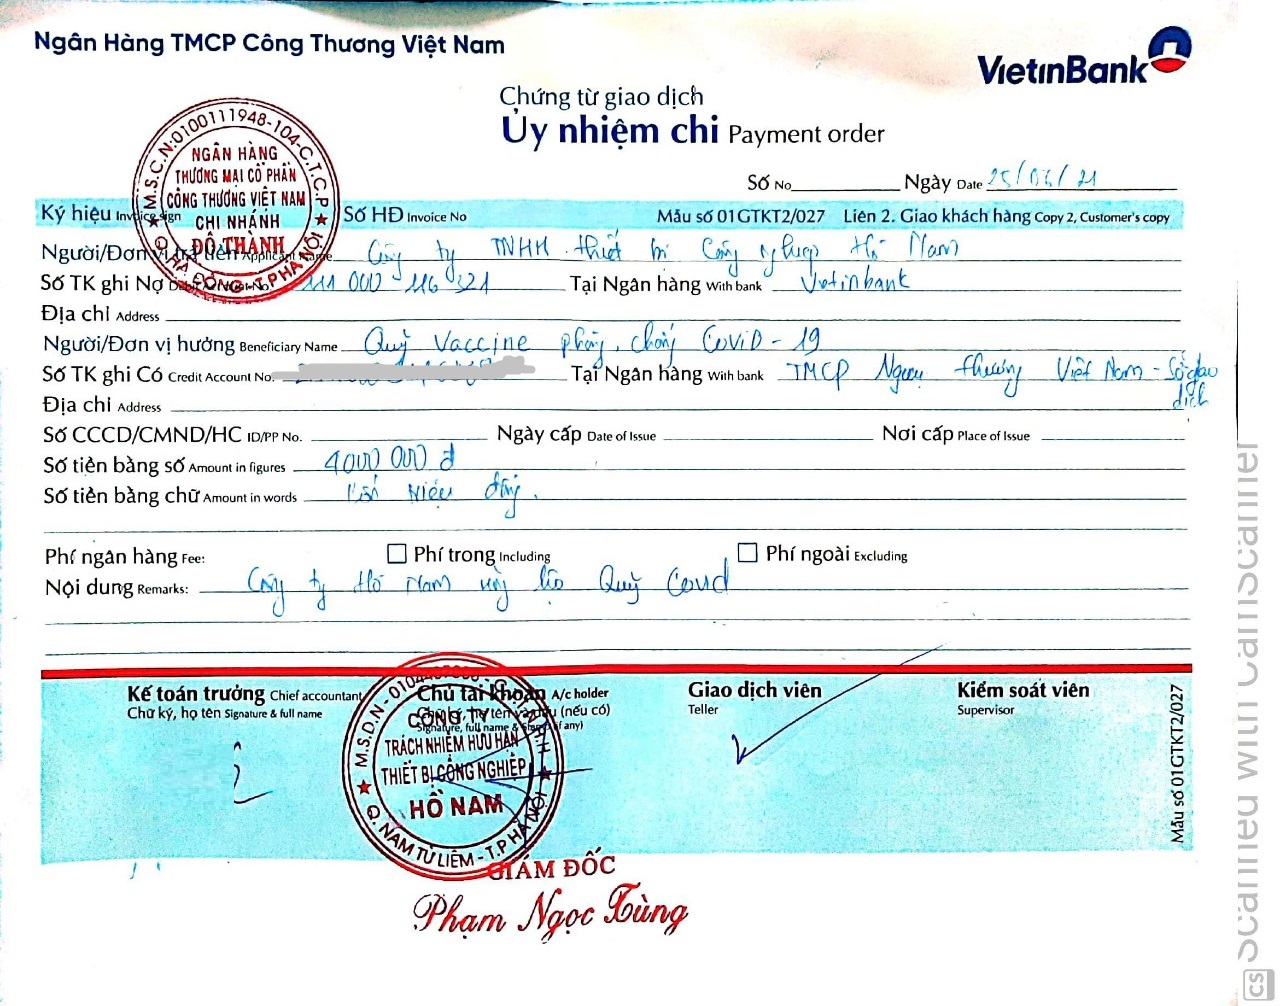 Ngân Hàng TMCP Công Thương Việt Nam
VietinBank
Chứng từ giao dịch
Ủy nhiệm chi Payment order
Số No Ngày Date 25/06/21
Ký hiệu Invoice sign Số HĐ Invoice No Mẫu số 01GTKT2/027 Liên 2. Giao khách hàng Copy 2, Customer's copy
M.S.C.N:0100111948-104-C.T.C.P
NGÂN HÀNG
THƯƠNG MẠI CỔ PHẦN
CÔNG THƯƠNG VIỆT NAM
CHI NHÁNH
ĐÔ THÀNH
Q. HÀ ĐÔNG - T.P HÀ NỘI
Người/Đơn vị trả tiền Applicant Name Công ty TNHH thiết bị Công nghiệp Hồ Nam
Số TK ghi Nợ 111 000 116 321 Tại Ngân hàng With bank Vietinbank
Địa chỉ Address
Người/Đơn vị hưởng Beneficiary Name Quỹ Vaccine phòng, chống CoviD - 19
Số TK ghi Có Credit Account No. Tại Ngân hàng With bank TMCP Ngoại thương Việt Nam - Sở giao
dịch
Địa chỉ Address
Số CCCD/CMND/HC ID/PP No. Ngày cấp Date of Issue Nơi cấp Place of Issue
Số tiền bằng số Amount in figures 4000 000 đ
Số tiền bằng chữ Amount in words Bốn triệu đồng.
Phí ngân hàng Fee: Phí trong Including Phí ngoài Excluding
Nội dung Remarks: Công ty Hồ Nam ủng hộ Quỹ Covid
Kế toán trưởng Chief accountant Chủ tài khoản A/c holder Giao dịch viên Kiểm soát viên
Chữ ký, họ tên Signature & full name Chữ ký, họ tên và dấu (nếu có) Teller Supervisor
Signature, full name & Stamp (if any)
CÔNG TY
TRÁCH NHIỆM HỮU HẠN
THIẾT BỊ CÔNG NGHIỆP
HỒ NAM
Q. NAM TỪ LIÊM - T.P HÀ NỘI
GIÁM ĐỐC
Phạm Ngọc Tùng
Mẫu số 01GTKT2/027
CS Scanned with CamScanner